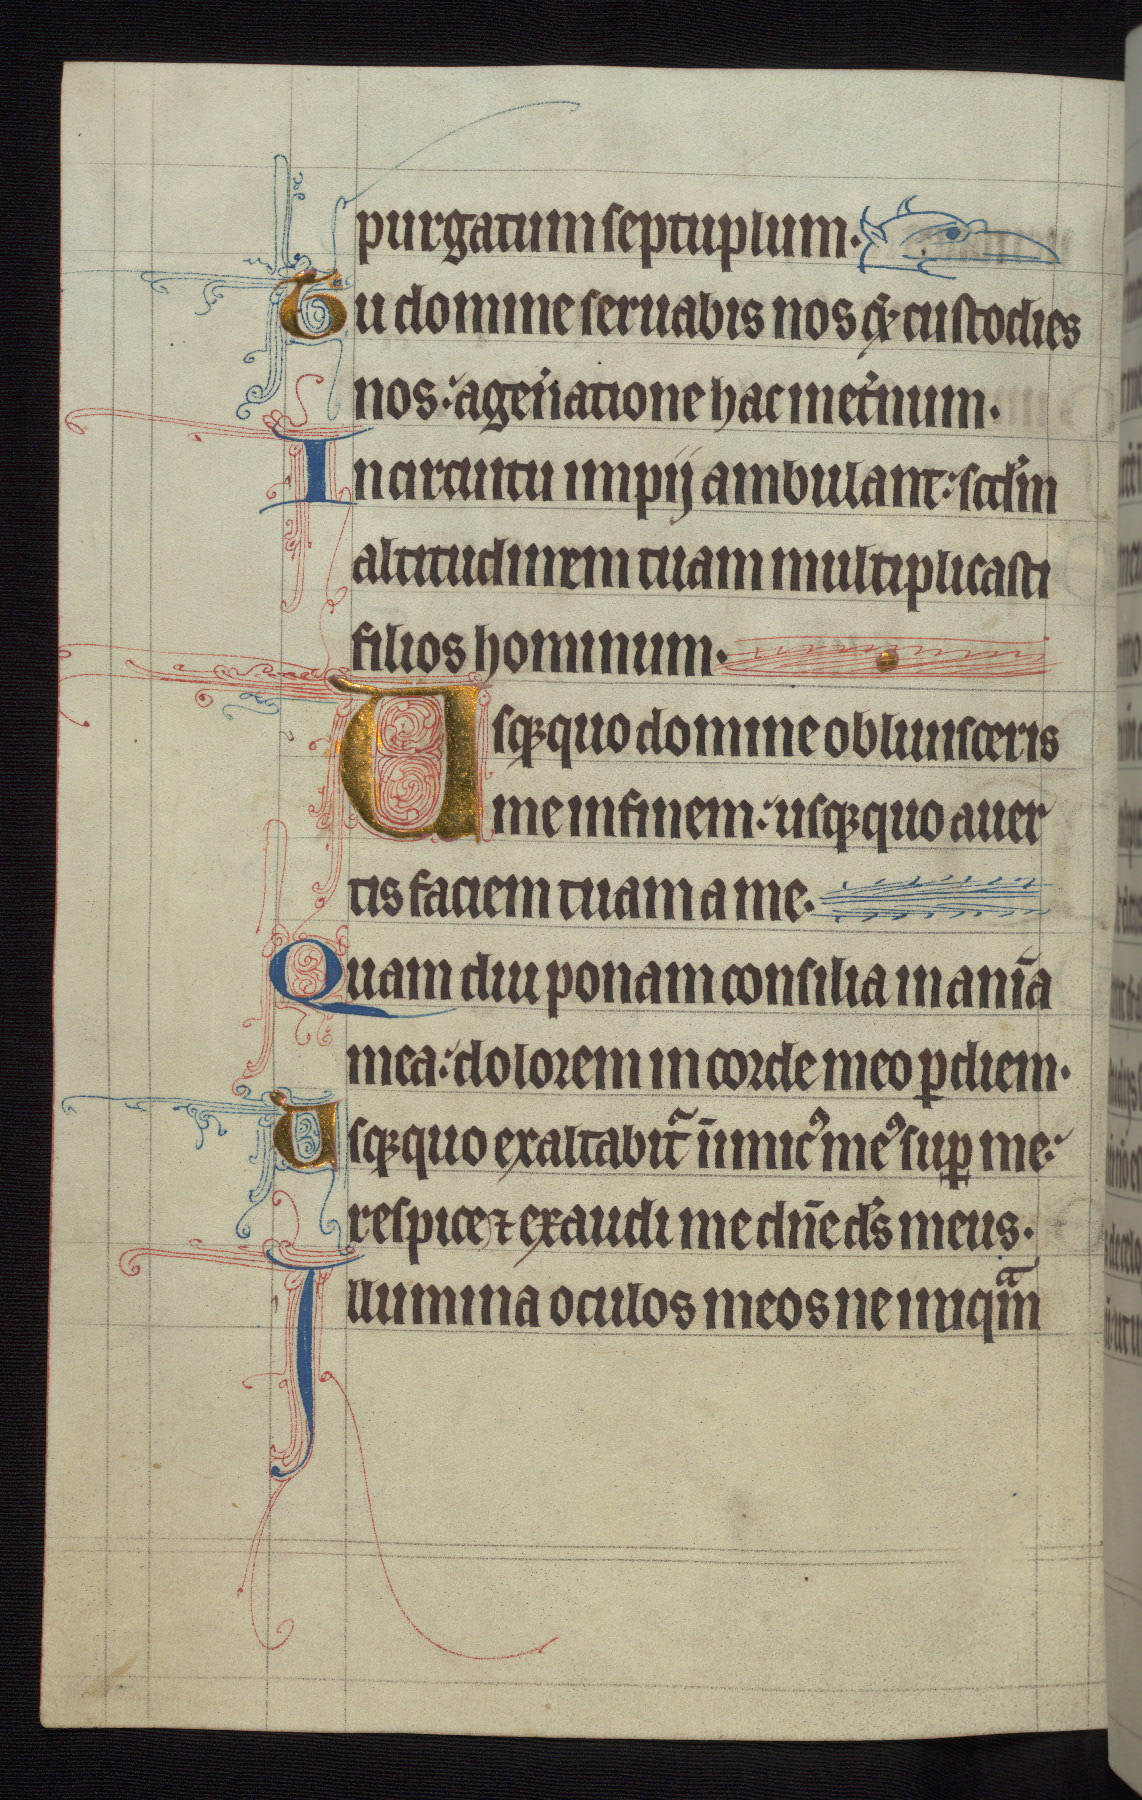 purgatum septuplum.
Tu domine seruabis nos & custodies
nos: a gen̄atione hac in et̄num.
In circuitu impij ambulant: scd̄m
altitudinem tuam multiplicasti
filios hominum.
Usqꝫquo domine obliuisceris
me in finem: usqꝫquo auer
tis faciem tuam a me.
Quam diu ponam consilia in anīa
mea: dolorem in corde meo ꝑ diem.
Usqꝫquo exaltabit᷑ inimicꝰ meꝰ suꝑ me:
respice ⁊ exaudi me dn̄e ds̄ meus.
Illumina oculos meos ne unqᵃm